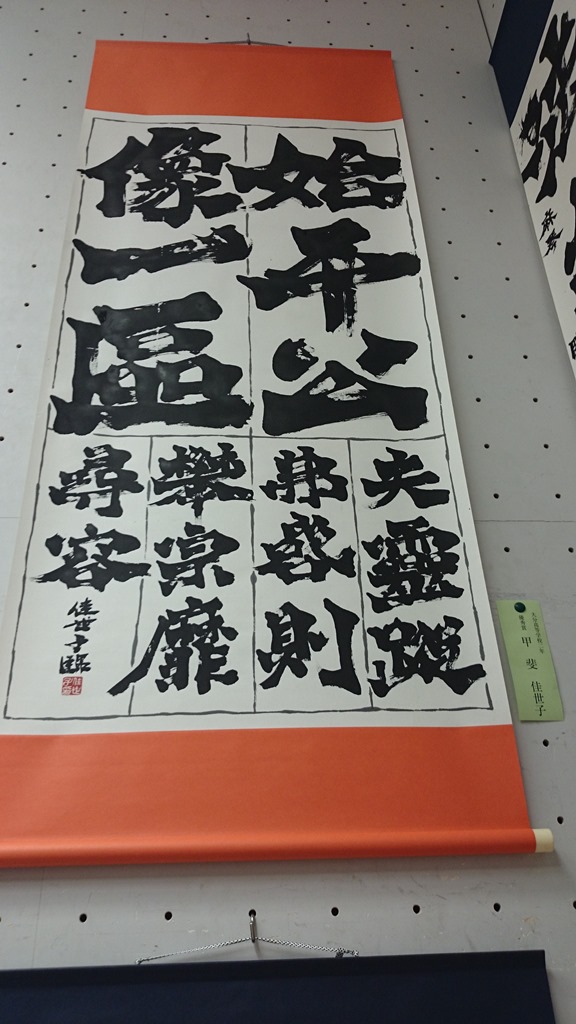 始平公
像一區
夫靈蹤
弗啓則
攀宗靡
尋容
佳世子臨
甲斐 佳世子